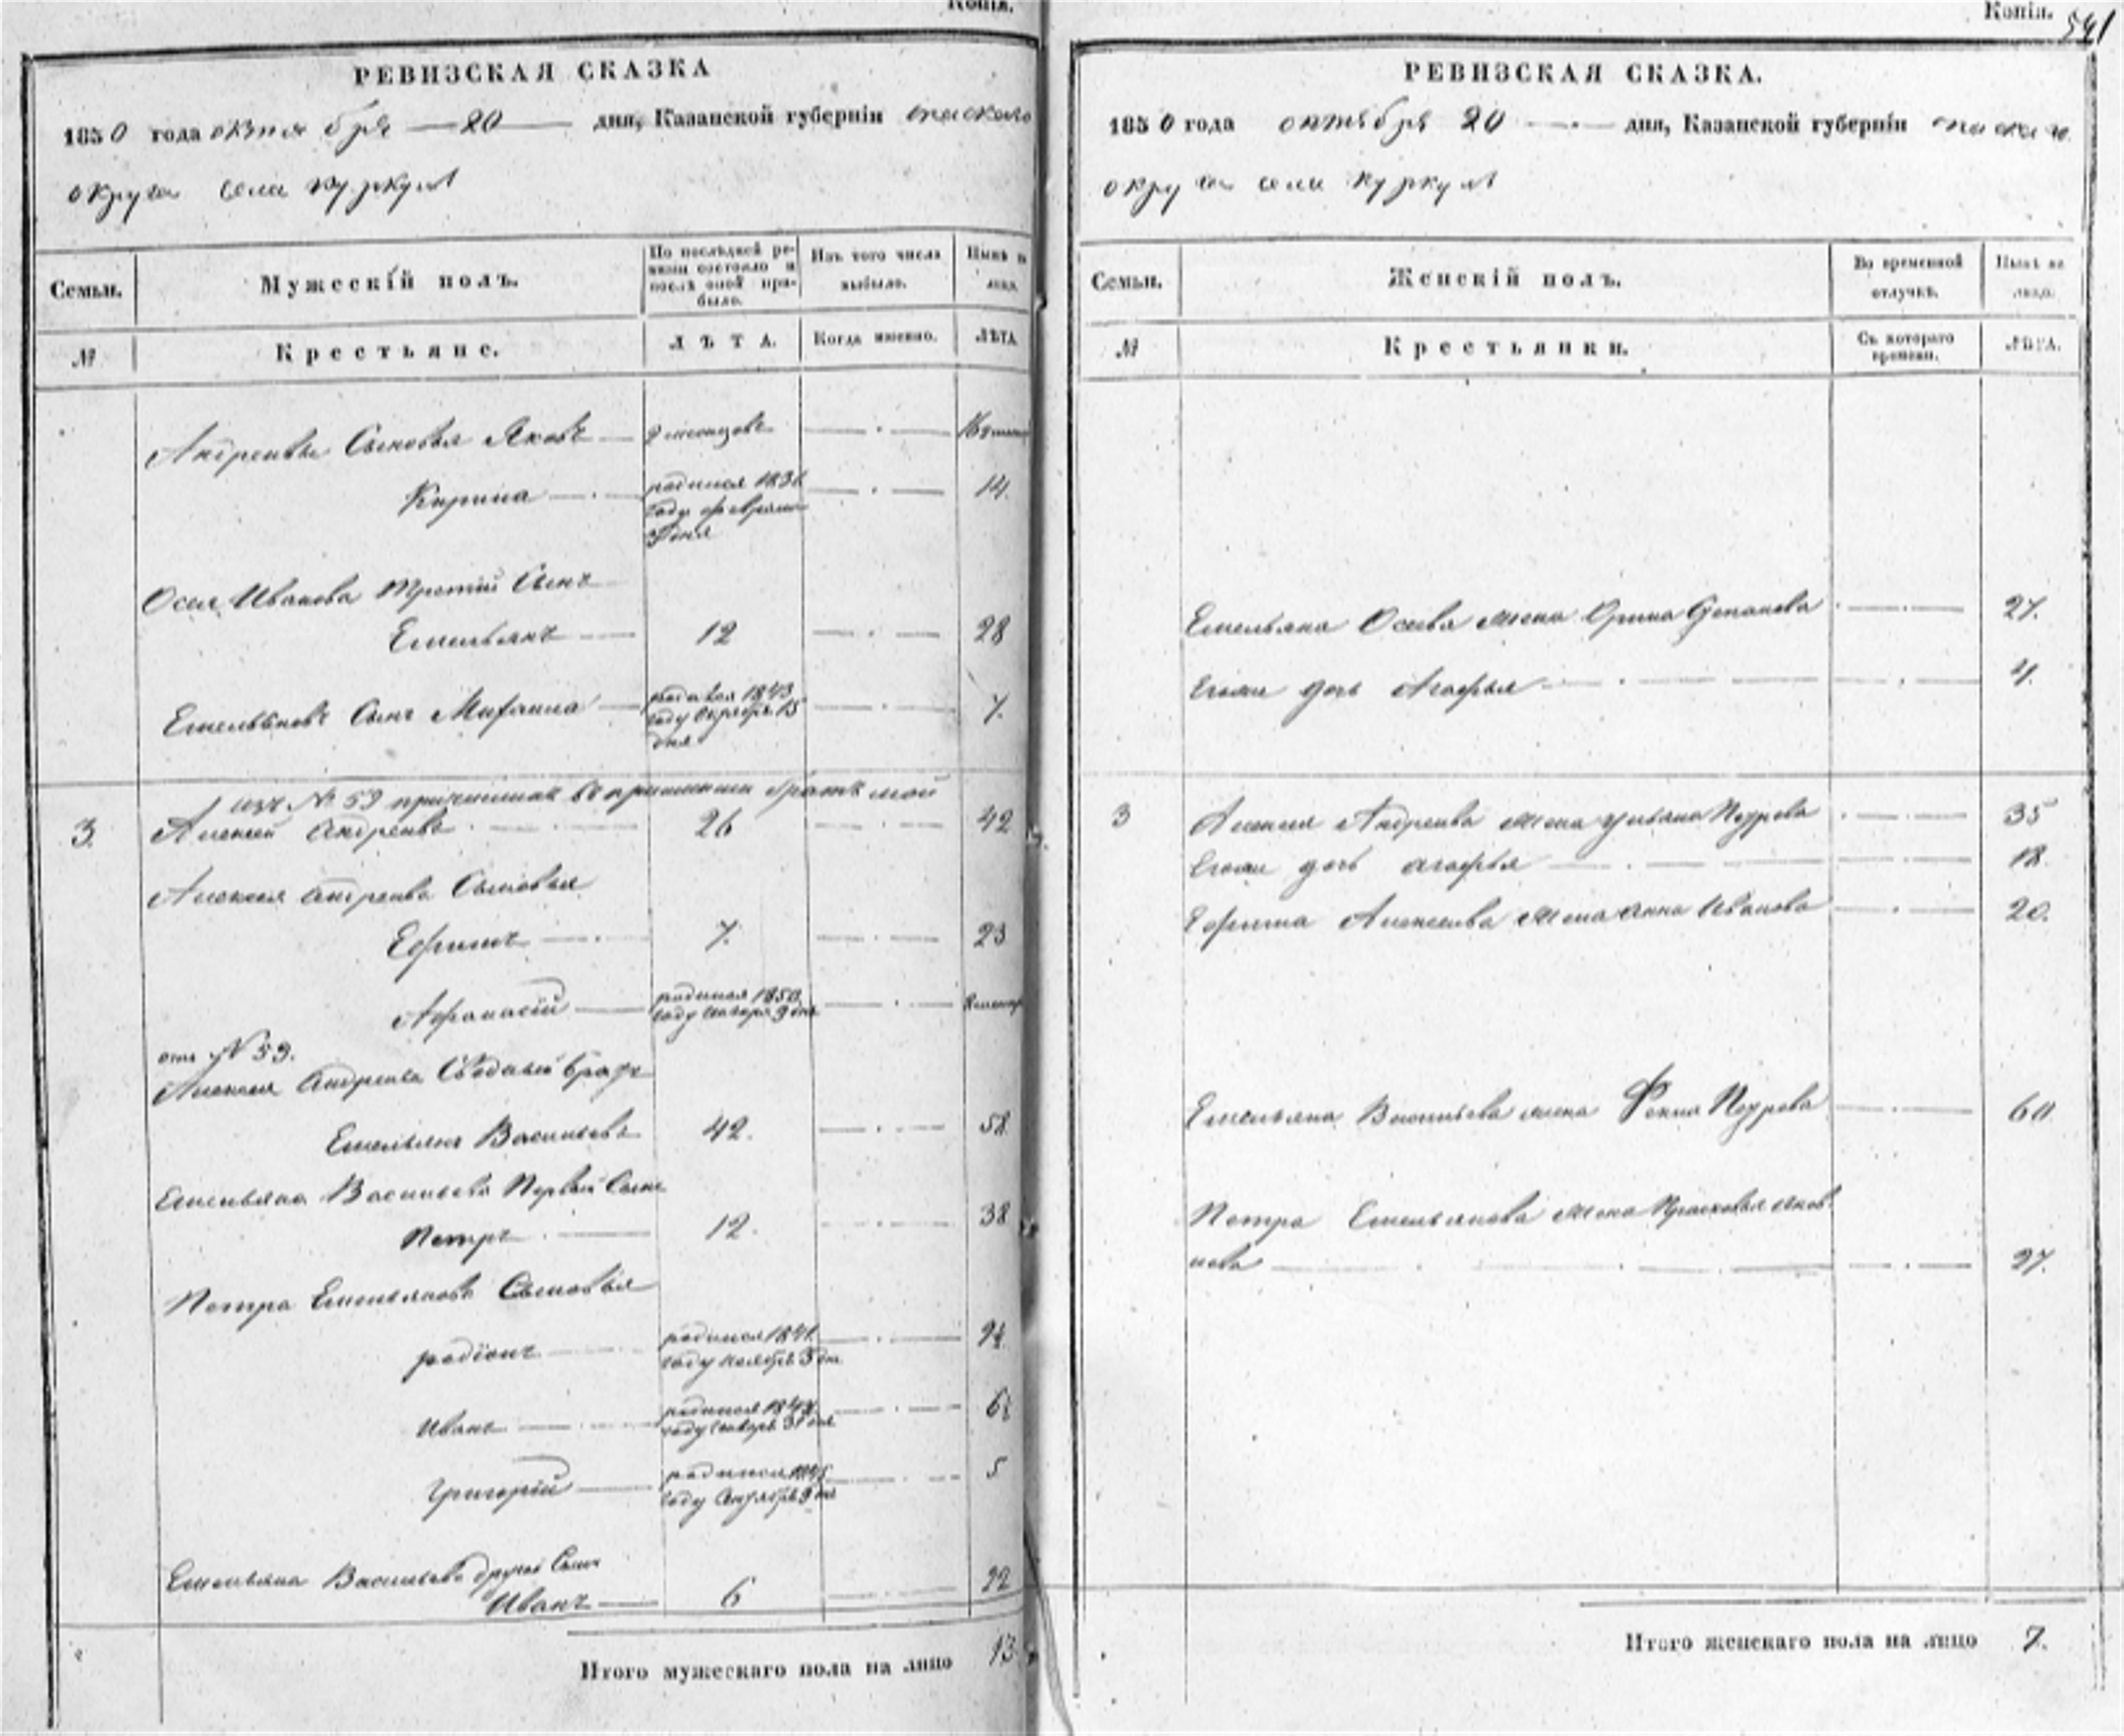 Копія.
РЕВИЗСКАЯ СКАЗКА
1850 года октября 20 дня, Казанской губерніи спаскаго
округа села куркуль
Семьи.
Мужескій полъ.
По послѣдней ревизіи состояло и послѣ оной прибыло.
Изъ того числа выбыло.
Нынѣ на лицо.
№
Крестьяне.
ЛѢТА.
Когда именно.
ЛѢТА.
Андреевы Сыновья Яковъ
Кирила 14.
родился 1836
году февраля
дня
Осипа Иванова Третій Сынъ
Емельянъ 12 28
Емельяновъ Сынъ Михаила 7.
родился 1843
году октября 15
дня
изъ № 59
3. Алексей Андреевъ 26 42
Алексея Андреева Сыновья
Ефимъ 7. 23
Афанасій
родился 1850
году января 9 дня
отъ № 59.
Алексея Андреева Сводный братъ
Емельянъ Васильевъ 42. 58
Емельяна Васильева Первый Сынъ
Петръ 12. 38
Петра Емельянова Сыновья
родіонъ
родился 1841
году ноября 5 дня
Иванъ
родился 1844
году января 31 дня
Григорій 5
родился 1845
году Октября 9 дня
Емельяна Васильева другой Сынъ
Иванъ 6 22
Итого мужескаго пола на лицо 13
Копія.
541
РЕВИЗСКАЯ СКАЗКА.
1850 года октября 20 дня, Казанской губерніи спаскаго
округа села куркуль
Семьи.
Женскій полъ.
Во временной отлучкѣ.
Нынѣ на лицо.
№
Крестьянки.
Съ котораго времени.
ЛѢТА.
Емельяна Осипова жена Орина Степанова 27.
Егоже дочь Агафья 4.
3 Алексея Андреева жена ульяна Петрова 35
Егоже дочь агафья 18.
Ефима Алексеева жена анна Иванова 20.
Емельяна Васильева жена Фекла Петрова 60
Петра Емельянова жена Прасковья
27.
Итого женскаго пола на лицо 7.